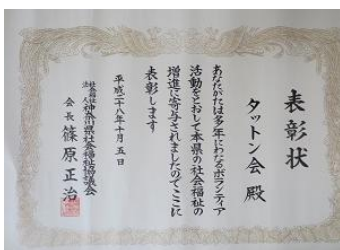 表彰状
タットン会 殿
あなたがたは多年にわたるボランティア
活動をとおして本県の社会福祉の
増進に寄与されましたのでここに
表彰します
平成二十八年十月五日
社会福祉法人神奈川県社会福祉協議会
会長 篠原正治